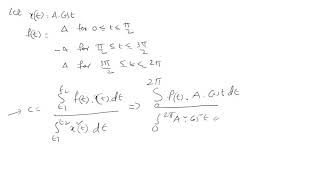 let x(t) = A. Cost
f(t) = A for 0 ≤ t ≤ π/2
-A for π/2 ≤ t ≤ 3π/2
A for 3π/2 ≤ t ≤ 2π
→ C = ∫t1^t2 f(t). x(t) dt / ∫t1^t2 x²(t) dt => ∫0^2π f(t). A. Cost dt / ∫0^2π A² Cos²t